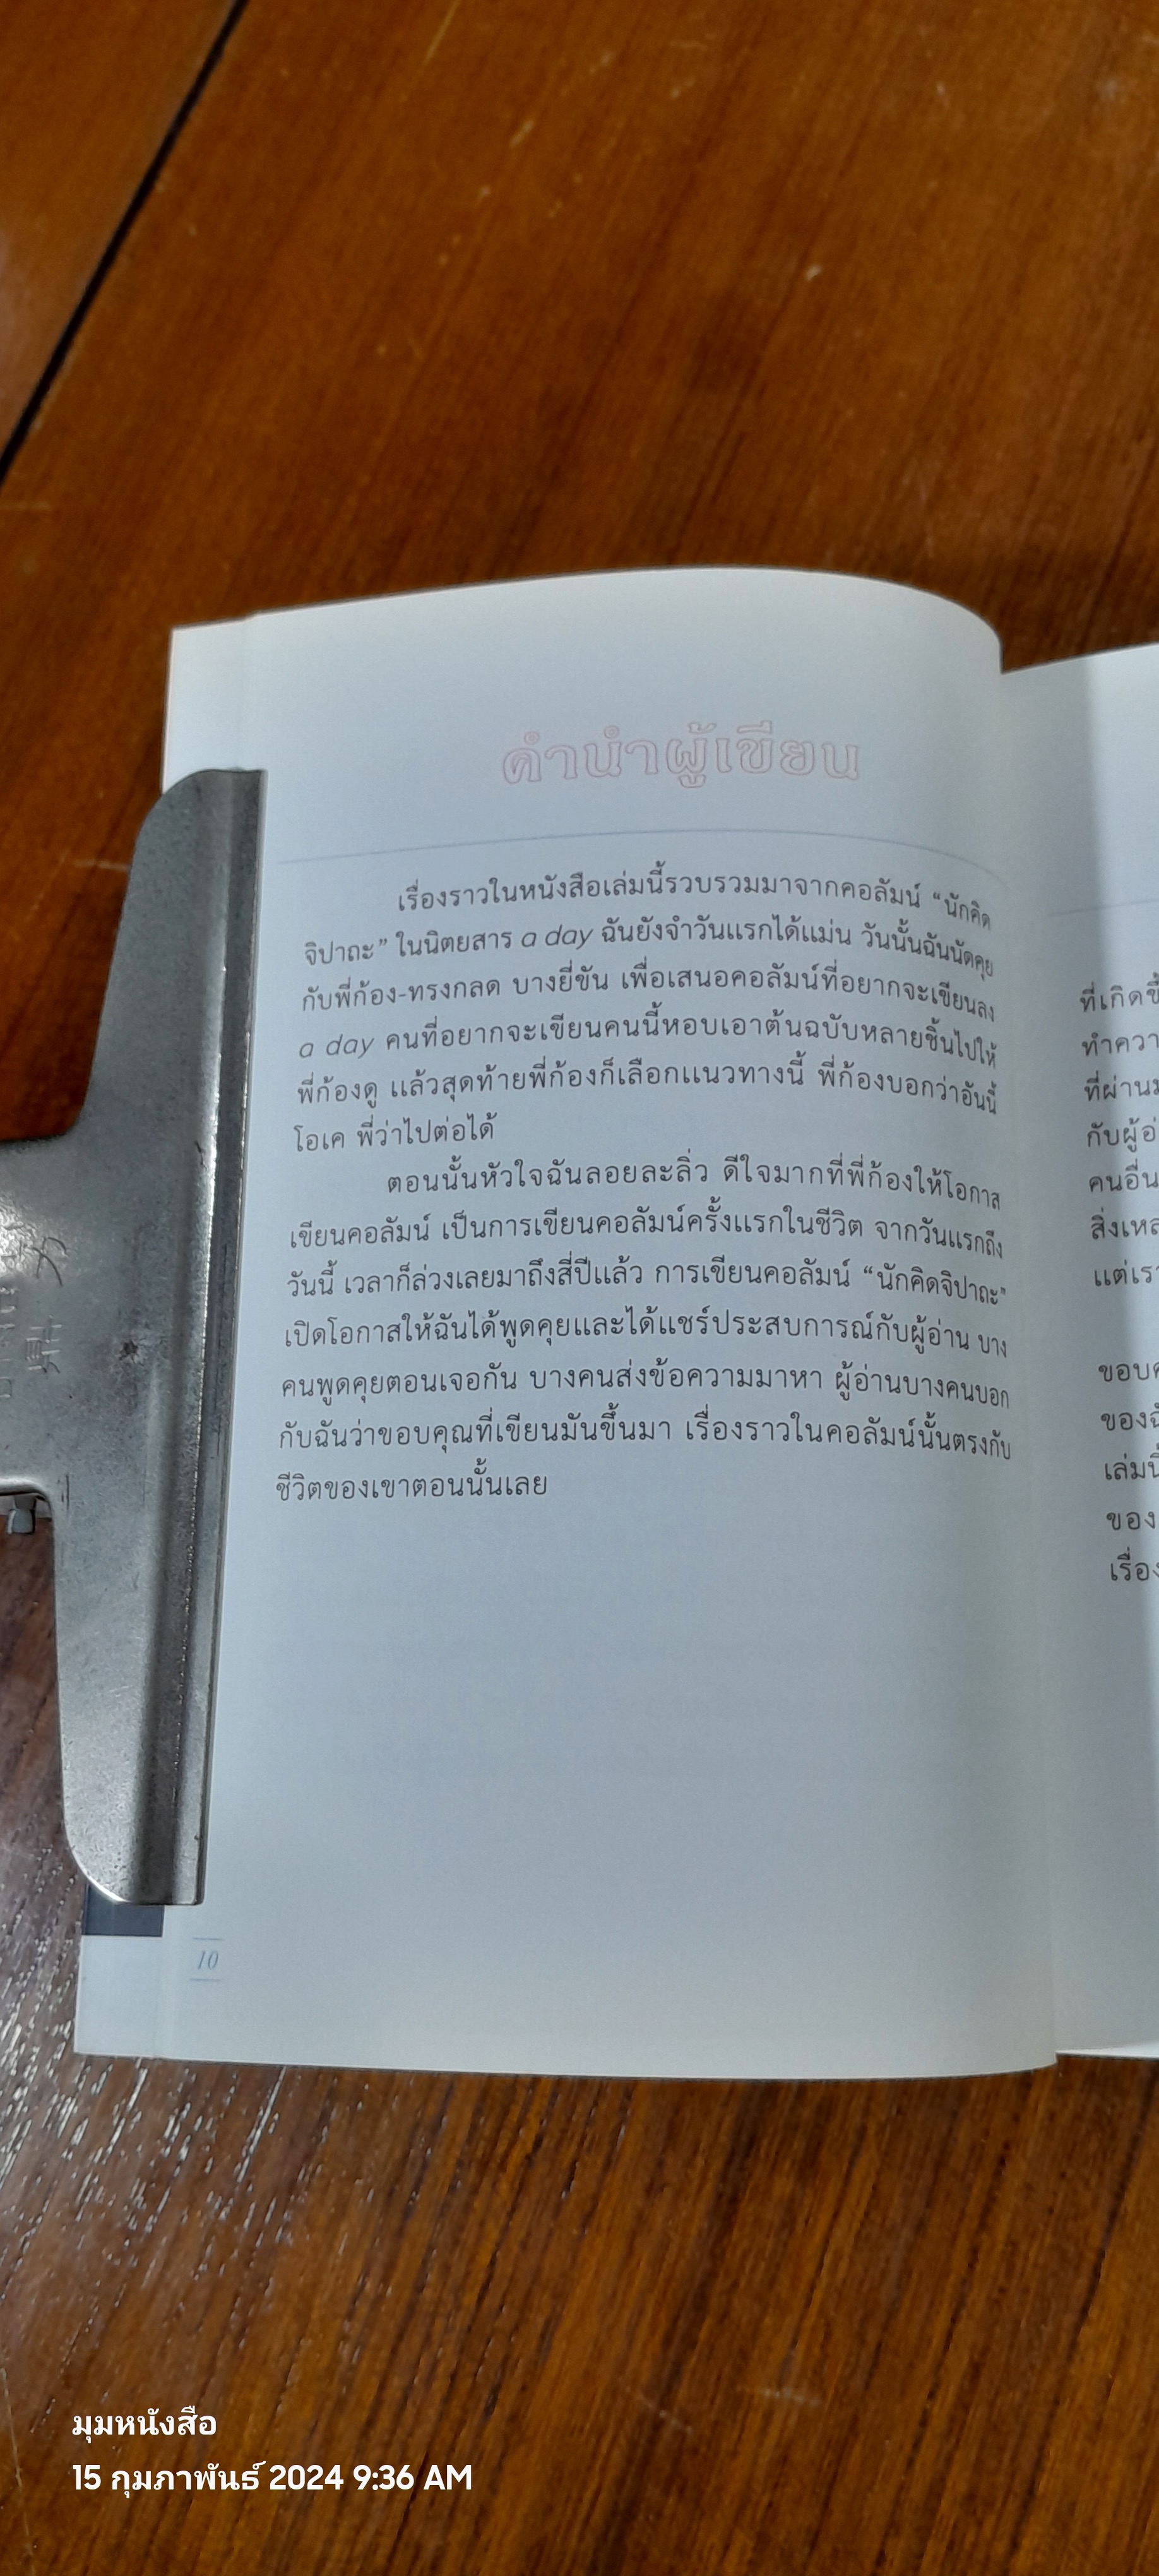 คำนำผู้เขียน
เรื่องราวในหนังสือเล่มนี้รวบรวมมาจากคอลัมน์ “นักคิด
จิปาถะ” ในนิตยสาร a day ฉันยังจำวันแรกได้แม่น วันนั้นฉันนัดคุย
กับพี่ก้อง-ทรงกลด บางยี่ขัน เพื่อเสนอคอลัมน์ที่อยากจะเขียนลง
a day คนที่อยากจะเขียนคนนี้หอบเอาต้นฉบับหลายชิ้นไปให้
พี่ก้องดู แล้วสุดท้ายพี่ก้องก็เลือกแนวทางนี้ พี่ก้องบอกว่าอันนี้
โอเค พี่ว่าไปต่อได้
ตอนนั้นหัวใจฉันลอยละลิ่ว ดีใจมากที่พี่ก้องให้โอกาส
เขียนคอลัมน์ เป็นการเขียนคอลัมน์ครั้งแรกในชีวิต จากวันแรกถึง
วันนี้ เวลาก็ล่วงเลยมาถึงสี่ปีแล้ว การเขียนคอลัมน์ “นักคิดจิปาถะ”
เปิดโอกาสให้ฉันได้พูดคุยและได้แชร์ประสบการณ์กับผู้อ่าน บาง
คนพูดคุยตอนเจอกัน บางคนส่งข้อความมาหา ผู้อ่านบางคนบอก
กับฉันว่าขอบคุณที่เขียนมันขึ้นมา เรื่องราวในคอลัมน์นั้นตรงกับ
ชีวิตของเขาตอนนั้นเลย
10
ที่เกิดขึ้
ทำควา
ที่ผ่านม
กับผู้อ่
คนอื่น
สิ่งเหล
แต่เรา
ขอบค
ของฉั
เล่มนี้
ของ
เรื่อง
มุมหนังสือ
15 กุมภาพันธ์ 2024 9:36 AM